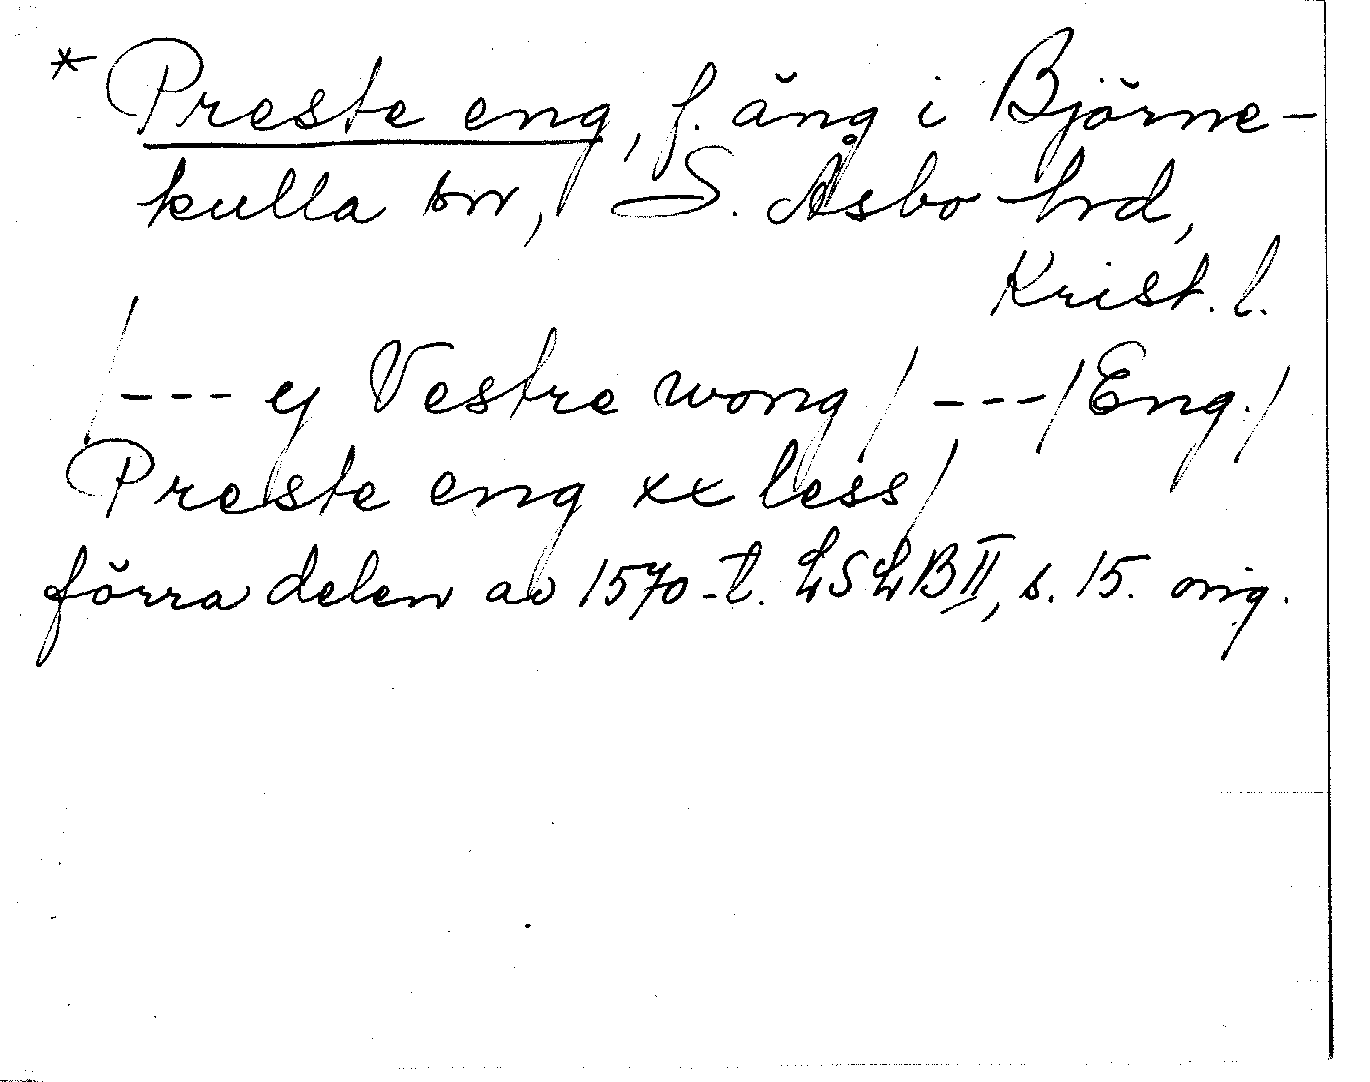 * Preste eng, f. äng i Björne-
kulla sn, S. Åsbo hrd,
Krist. l.
/--- ej Vestre wong/ ---/Eng./
Preste eng xx less/
förra delen av 1570-t. LSLB II, s. 15. orig.